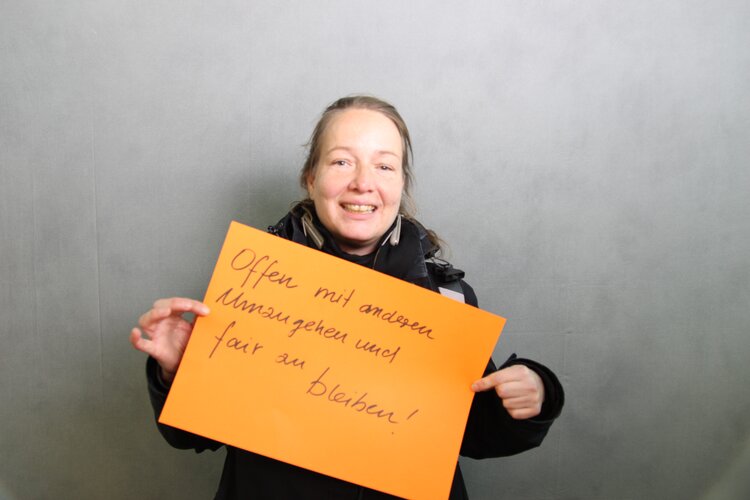 Offen mit anderen
Umzugehen und
fair zu
bleiben!